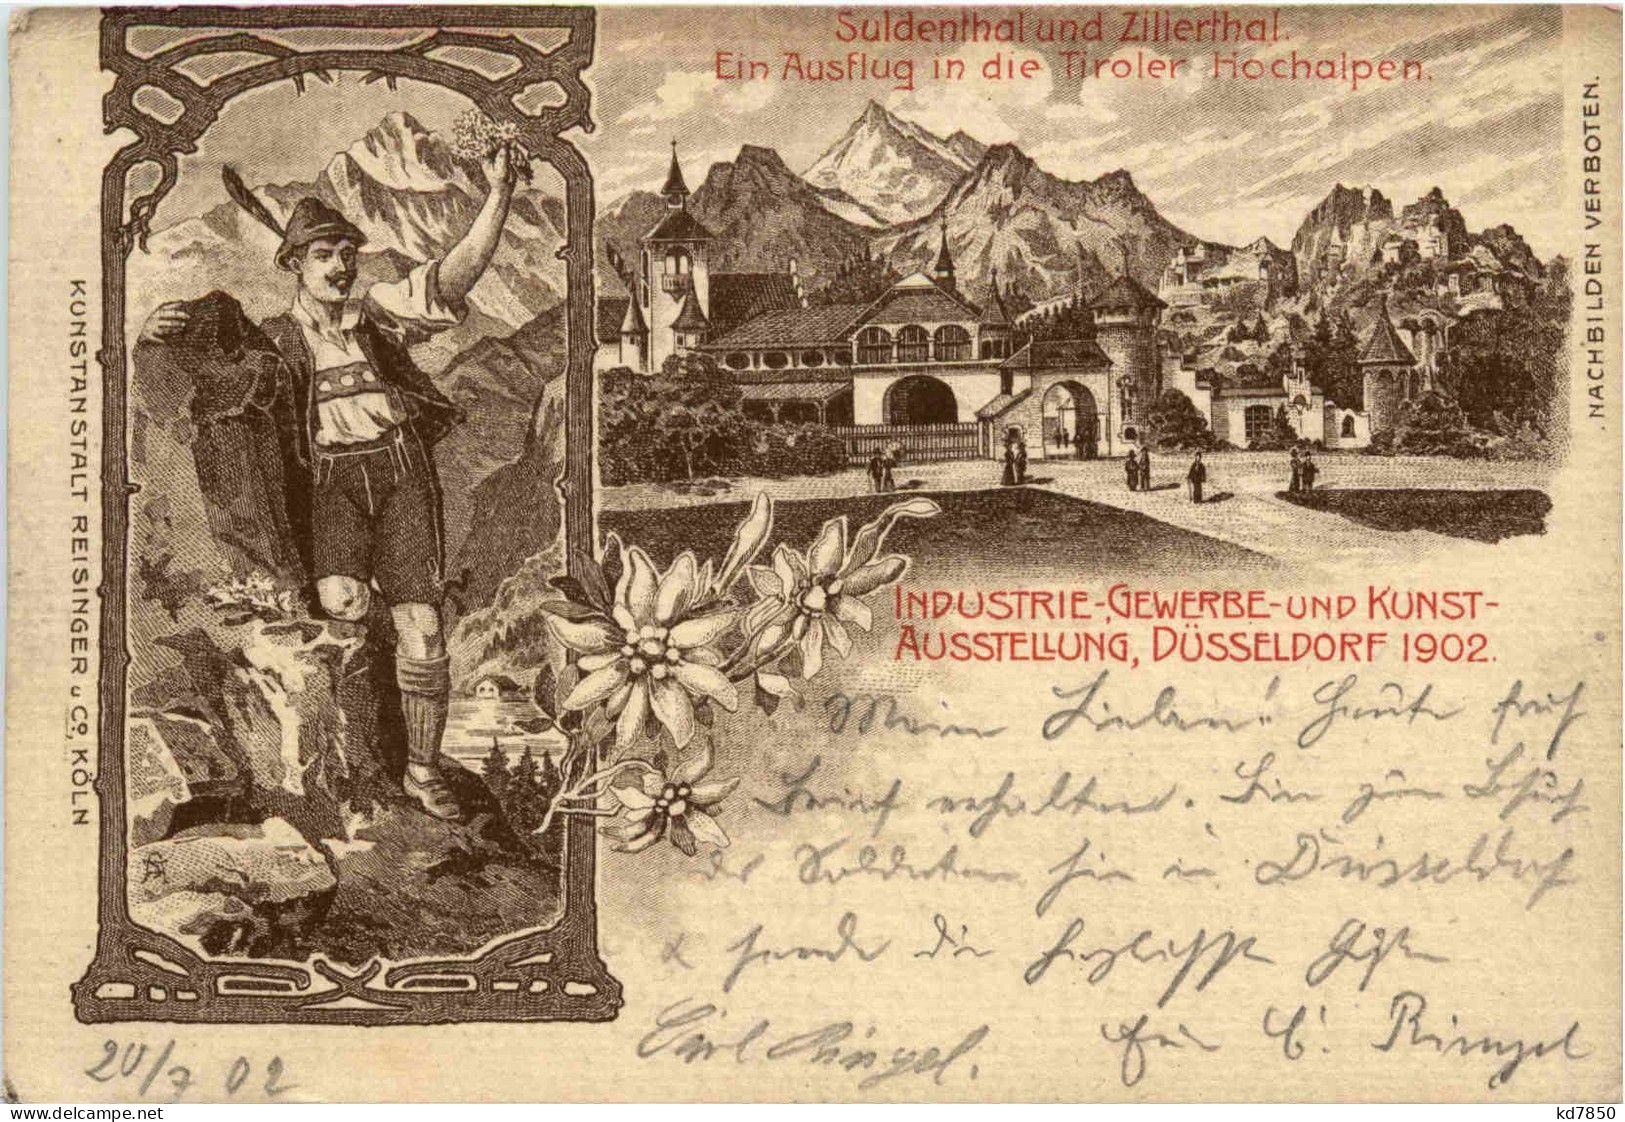 Suldenthal und Zillerthal.
Ein Ausflug in die Tiroler Hochalpen.
NACHBILDEN VERBOTEN.
KUNSTANSTALT REISINGER u. Co., KÖLN
INDUSTRIE-, GEWERBE- UND KUNST-
AUSSTELLUNG, DÜSSELDORF 1902.
Meine Lieben! Heute früh
Brief erhalten. Bin zum Besuch
der Soldaten hier in Düsseldorf
& sende die herzlichsten Grüße
C. Ringel
Carl Ringel.
20/7 02
kd7850